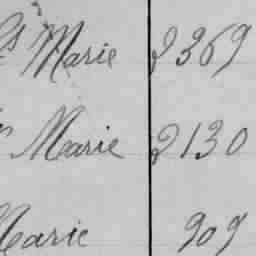 Marie 2369
Marie 2130
Marie 909